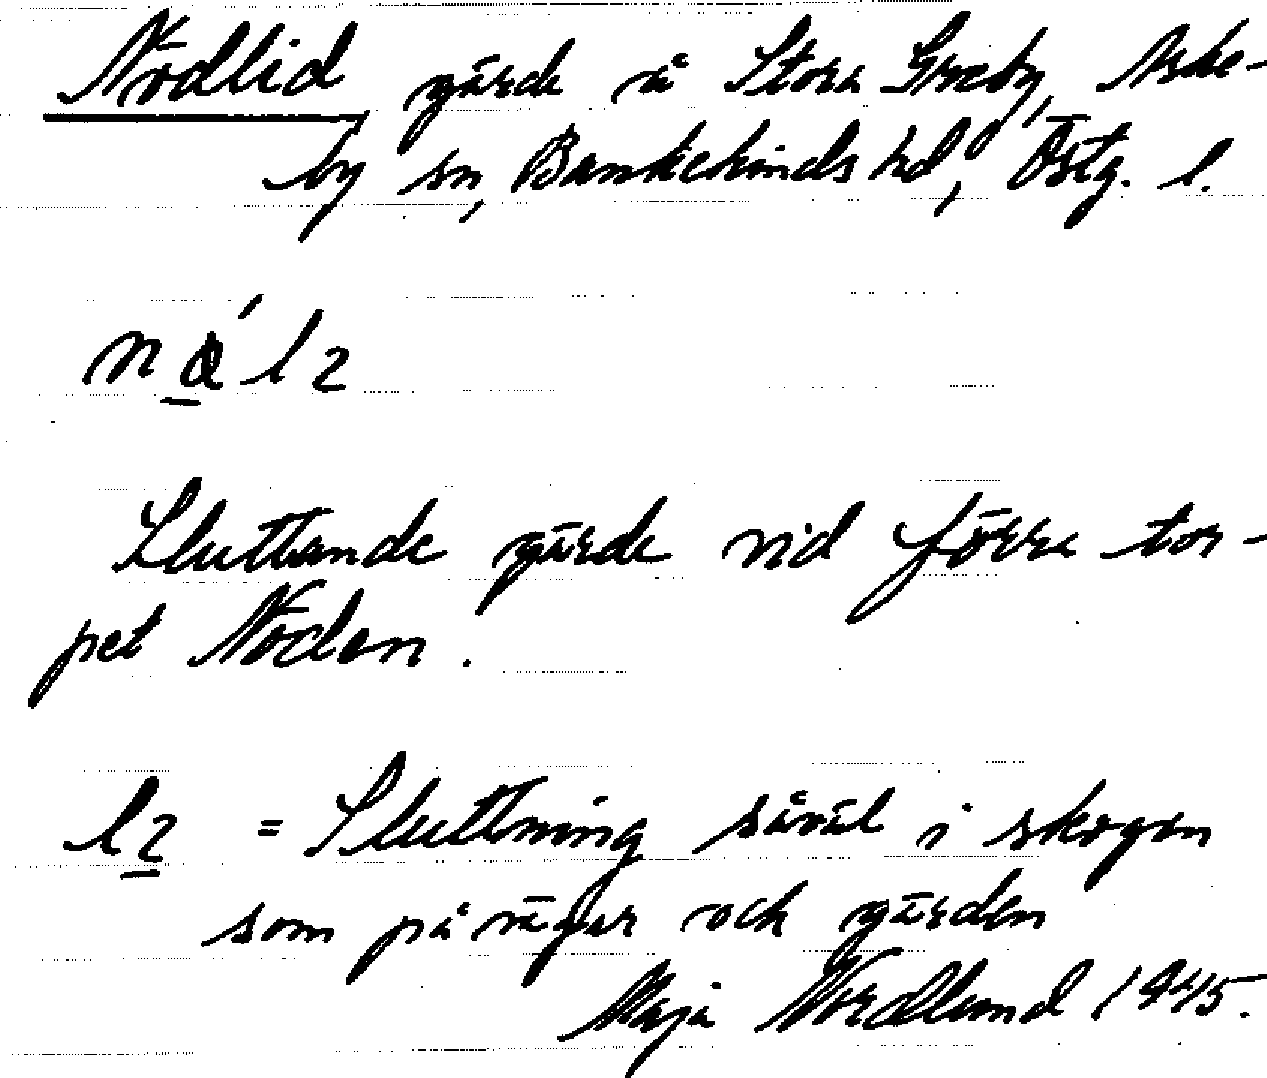 Nödlid gärde å Stora Greby, Aske-
by sn, Bankekinds hd, Östg. l.
Sluttande gärde vid förra tor-
pet Nöden.
= Sluttning såväl i skogen
som på vägar och gärden
Maja Nordlund 1945.